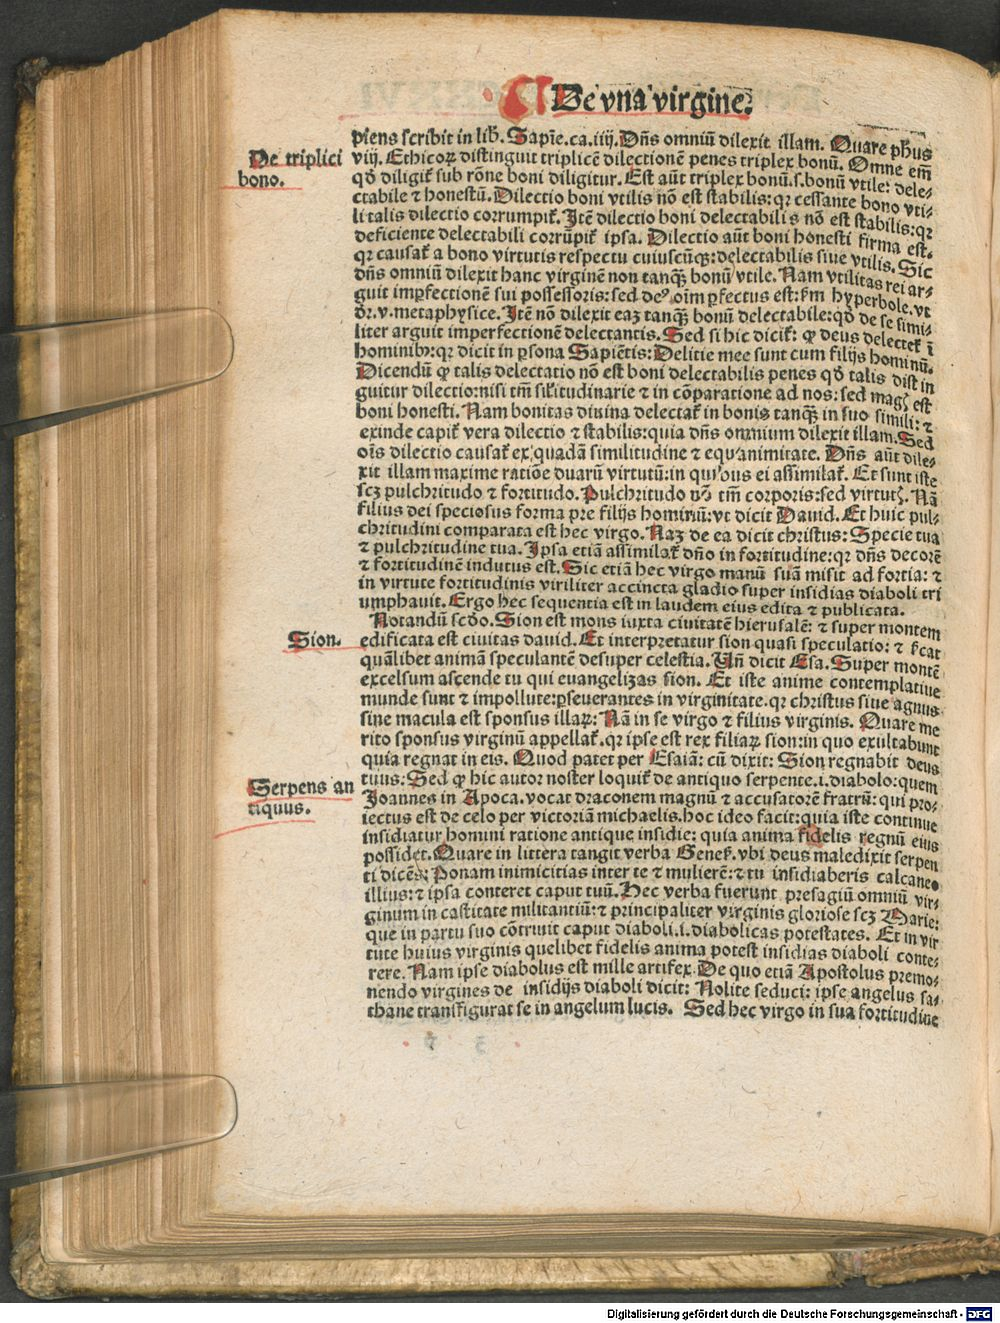 De vna virgine.
piens scribit in lib̄. Sapīe. ca. iiij. Dn̄s omniū dilexit illam. Quare ph̄us
De triplici
bono.
viij. Ethicoꝝ distinguit triplicē dilectionē penes triplex bonū. Omne em̄
qđ diligit̄ sub rōne boni diligitur. Est aūt triplex bonū. s. bonū vtile: dele⸗
ctabile ⁊ honestū. Dilectio boni vtilis nō est stabilis: qꝛ cessante bono vti⸗
li talis dilectio corrumpit̄. Itē dilectio boni delectabilis nō est stabilis: qꝛ
deficiente delectabili corrūpit̄ ipsa. Dilectio aūt boni honesti firma est.
qꝛ causat̄ a bono virtutis respectu cuiuscūqꝫ: delectabilis siue vtilis. Sic
dn̄s omniū dilexit hanc virginē non tanqꝫ bonū vtile. Nam vtilitas rei ar⸗
guit imꝑfectionē sui possessoris: sed deꝰ oīm ꝑfectus est: ẜm hyperbole. vt
dr̄. v. metaphysice. Itē nō dilexit eaꝫ tanqꝫ bonū delectabile: qđ de se simi⸗
liter arguit imperfectionē delectantis. Sed si hic dicit̄: ꝙ deus delectet̄ ī
hominibꝰ: qꝛ dicit in ꝑsona Sapiētis: Delitie mee sunt cum filijs hominū.
Dicendū ꝙ talis delectatio nō est boni delectabilis penes qđ talis distin
guitur dilectio: nisi tm̄ sil̄itudinarie ⁊ in cōparatione ad nos: sed magꝭ est
boni honesti. Nam bonitas diuina delectat̄ in bonis tanqꝫ in suo simili: ⁊
exinde capit̄ vera dilectio ⁊ stabilis: quia dn̄s omnium dilexit illam. Sed
oīs dilectio causat̄ ex quadā similitudine ⁊ equanimitate. Dn̄s aūt dile⸗
xit illam maxime ratiōe duarū virtutū: in quibus ei assimilat̄. Et sunt iste
scꝫ pulchritudo ⁊ fortitudo. Pulchritudo vō tm̄ corporis: sed virtutꝭ. Nā
filius dei speciosus forma pre filijs hominū: vt dicit Dauid. Et huic pul⸗
chritudini comparata est hec virgo. Naꝫ de ea dicit christus: Specie tua
⁊ pulchritudine tua. Ipsa etiā assimilat̄ dn̄o in fortitudine: qꝛ dn̄s decorē
⁊ fortitudinē indutus est. Sic etiā hec virgo manū suā misit ad fortia: ⁊
in virtute fortitudinis viriliter accincta gladio super insidias diaboli tri
umphauit. Ergo hec sequentia est in laudem eius edita ⁊ publicata.
Notandū scđo. Sion est mons iuxta ciuitatē hierusalē: ⁊ super montem
Sion.
edificata est ciuitas dauid. Et interpꝛetatur sion quasi speculatio: ⁊ ẜcat
quālibet animā speculantē desuper celestia. Vn̄ dicit Esa. Super montē
excelsum ascende tu qui euangelizas sion. Et iste anime contemplatiue
munde sunt ⁊ impollute: ꝑseuerantes in virginitate. qꝛ christus siue agnus
sine macula est sponsus illaꝝ: Nā in se virgo ⁊ filius virginis. Quare me
rito sponsus virginū appellat̄. qꝛ ipse est rex filiaꝝ sion: in quo exultabunt
quia regnat in eis. Quod patet per Esaiā: cū dixit: Sion regnabit deus
Serpens an
tiquus.
tuus: Sed ꝙ hic autor noster loquit̄ de antiquo serpente. i. diabolo: quem
Joannes in Apoca. vocat draconem magnū ⁊ accusatorē fratrū: qui pro⸗
iectus est de celo per victoriā michaelis. hoc ideo facit: quia iste continue
insidiatur homini ratione antique insidie: quia anima fidelis regnū eius
possidet. Quare in littera tangit verba Genes̄. vbi deus maledixit serpen
ti dicēs: Ponam inimicitias inter te ⁊ mulierē: ⁊ tu insidiaberis calcaneo
illius: ⁊ ipsa conteret caput tuū. Hec verba fuerunt presagiū omniū vir⸗
ginum in castitate militantiū: ⁊ principaliter virginis gloriose scꝫ Marie:
que in partu suo cōtriuit caput diaboli. i. diabolicas potestates. Et in vir
tute huius virginis quelibet fidelis anima potest insidias diaboli conte⸗
rere. Nam ipse diabolus est mille artifex. De quo etiā Apostolus premo⸗
nendo virgines de insidijs diaboli dicit: Nolite seduci: ipse angelus sa⸗
thane transfigurat se in angelum lucis. Sed hec virgo in sua fortitudine
Digitalisierung gefördert durch die Deutsche Forschungsgemeinschaft - DFG